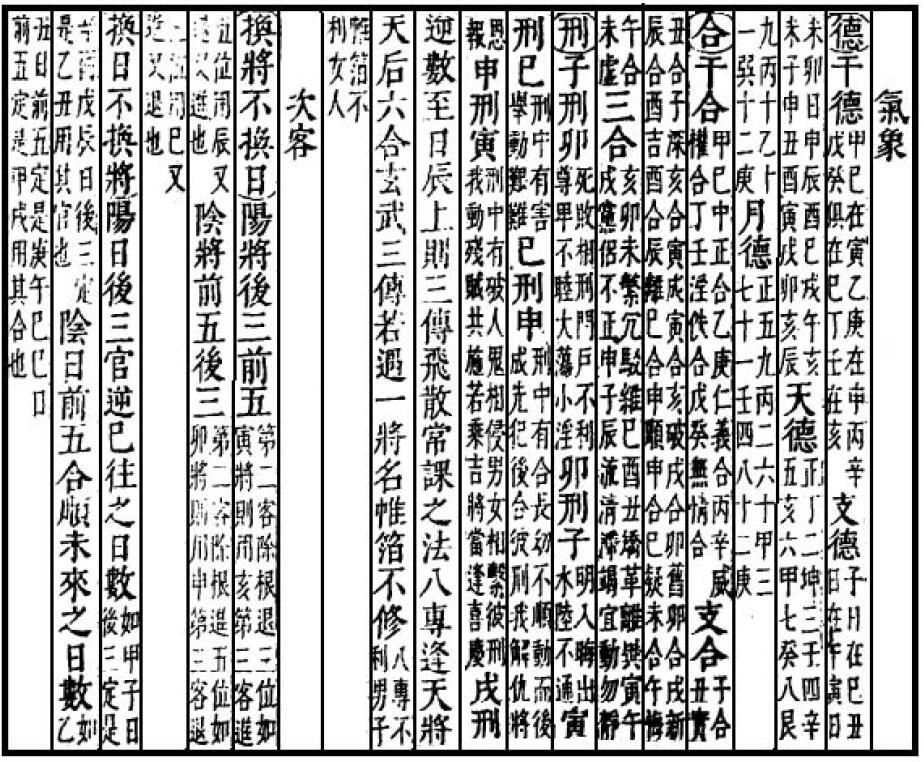 氣象
德干德甲巳在寅乙庚在申丙辛戊癸俱在巳丁壬在亥支德子日在巳丑日在午寅日
未卯日申辰酉巳戌午亥未子申丑酉寅戌卯亥辰天德正丁二坤三壬四辛五亥六甲七癸八艮
九丙十乙十一巽十二庚月德正五九丙二六十甲三七十一壬四八十二庚
合干合甲巳中正合乙庚仁義合丙辛威權合丁壬淫佚合戊癸無情合支合子合丑實
丑合子深亥合寅成寅合亥破戌合卯舊卯合戌新辰合酉吉酉合辰離巳合申順申合巳疑未合午悔
午合未虛三合亥卯未繁冗駁雜巳酉丑矯革離異寅午戌黨侶不正申子辰流清滯竭宜動勿靜
刑子刑卯死敗相刑門戶不利尊卑不睦大蕩小淫卯刑子明入晦出水陸不通寅
刑巳刑中有害舉動艱難巳刑申刑中有合長幼不順動而後成先犯後合彼刑我解仇將
恩報申刑寅刑中有破人鬼相侵男女相繫彼刑我動殘賊共施若乘吉將當逢喜慶戌刑
逆數至日辰上則三傳飛散常課之法八專逢天將
天后六合玄武三傳若遇一將名帷箔不修八專不利男子
帷箔不利女人
次客
換將不換日陽將後三前五第二客除根退三位如寅將則用亥第三客進
五位用辰又退又進也陰將前五後三第二客除根進五位如卯將則用申第三客退
三位用巳又進又退也
換日不換將陽日後三官逆巳往之日數如甲子日後三定是
戊辰日後三定是乙丑用其官也陰日前五合順未來之日數如乙
丑日前五定是庚午巳巳日前五定是甲戌用其合也